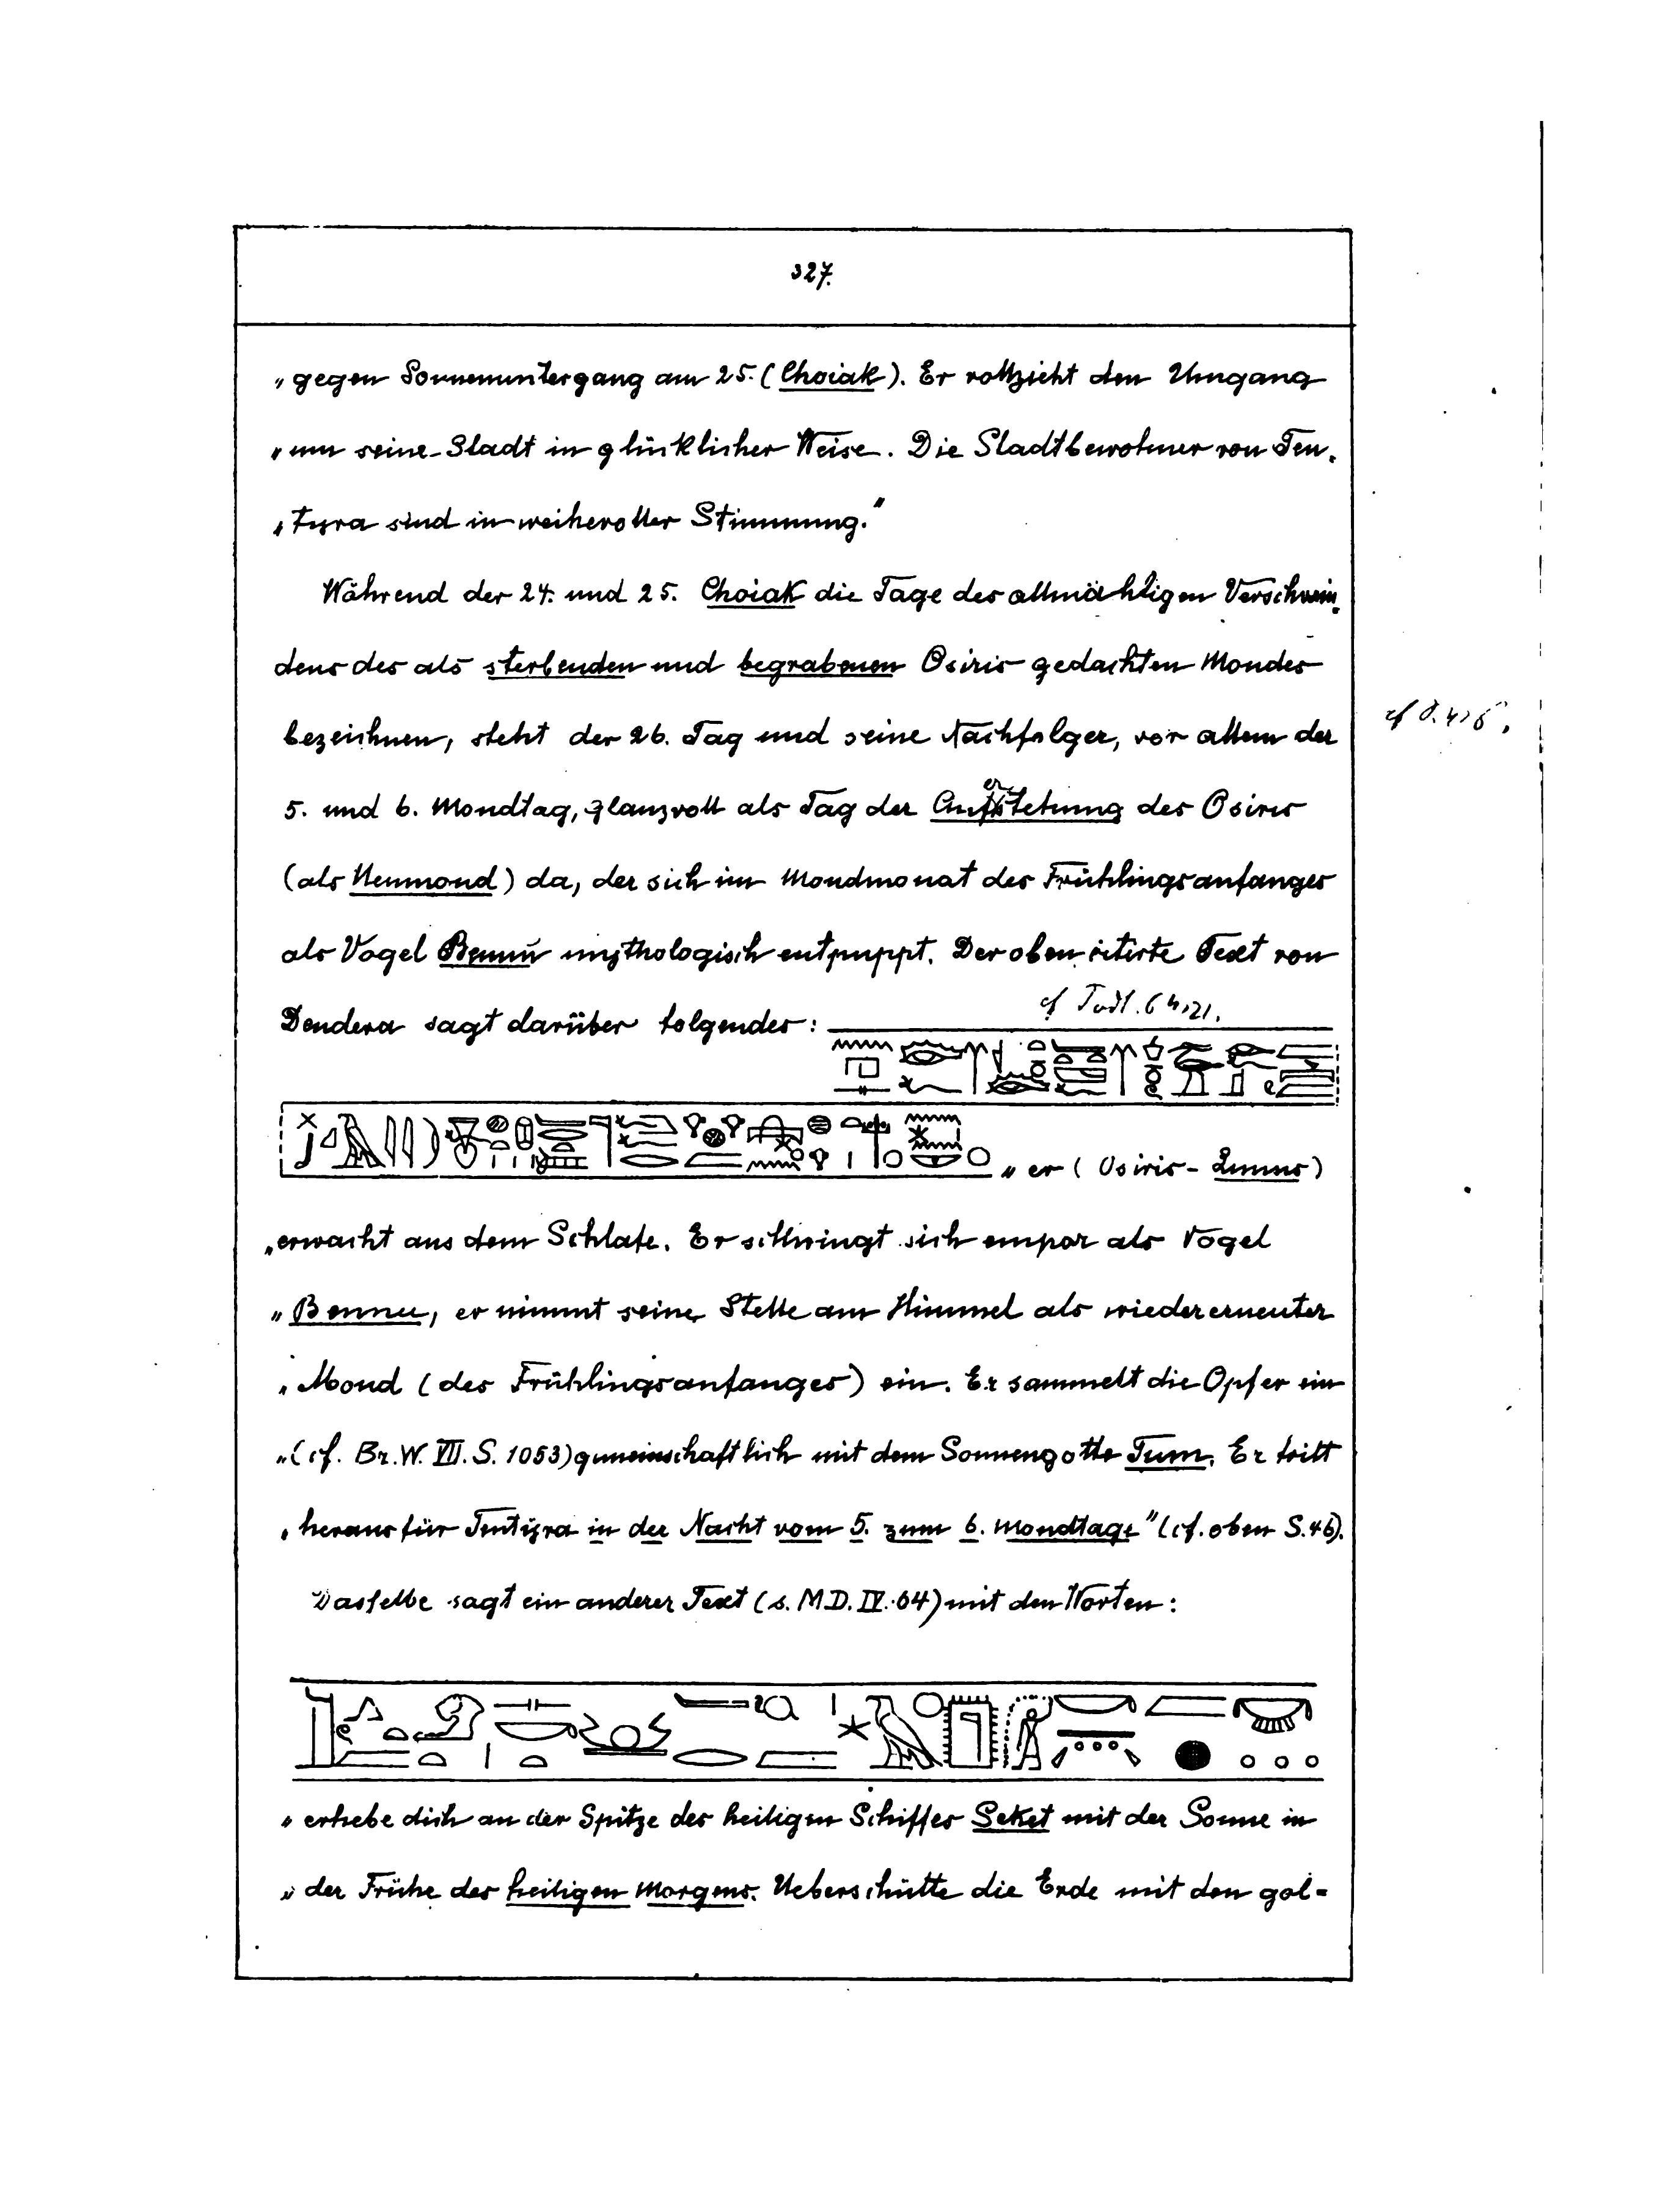 327.
„gegen Sonnenuntergang am 25. (Choiak). Er vollzieht den Umgang
„um seine Stadt in glücklicher Weise. Die Stadtbewohner von Ten-
„tyra sind in weihevoller Stimmung."
Während der 24. und 25. Choiak die Tage des allmähligen Verschwin-
dens des als sterbenden und begrabenen Osiris gedachten Mondes
bezeichnen, steht der 26. Tag und seine Nachfolger, vor allem der
5. und 6. Mondtag, glanzvoll als Tag der Auferstehung des Osiris
(als Neumond) da, der sich im Mondmonat des Frühlingsanfanges
als Vogel Bennu mythologisch entpuppt. Der oben citirte Text von
cf Todt. 64,21.
Dendera sagt darüber folgendes:
„er (Osiris-Lunus)
„erwacht aus dem Schlafe. Er schwingt sich empor als Vogel
„Bennu, er nimmt seine Stelle am Himmel als wiedererneuter
„Mond (des Frühlingsanfanges) ein. Er sammelt die Opfer ein
„(cf. Br. W. VII. S. 1053) gemeinschaftlich mit dem Sonnengotte Tum. Er tritt
„heraus für Tentyra in der Nacht vom 5. zum 6. Mondtage" (cf. oben S. 46).
Dasselbe sagt ein anderer Text (s. M.D. IV. 64) mit den Worten:
„erhebe dich an der Spitze des heiligen Schiffes Seket mit der Sonne in
„der Frühe des heiligen Morgens. Ueberschütte die Erde mit den gol=